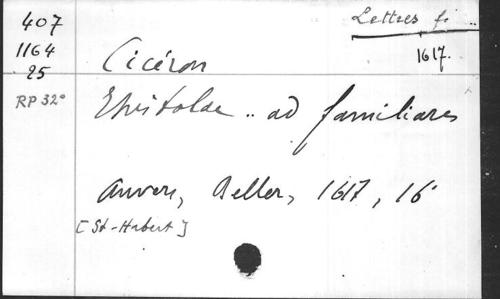 407
1164
25
RP 32°
Lettres fi ..
1617.
Cicéron
Epistolae .. ad familiares
Anvers, Beller, 1617, 16°
[St-Hubert]